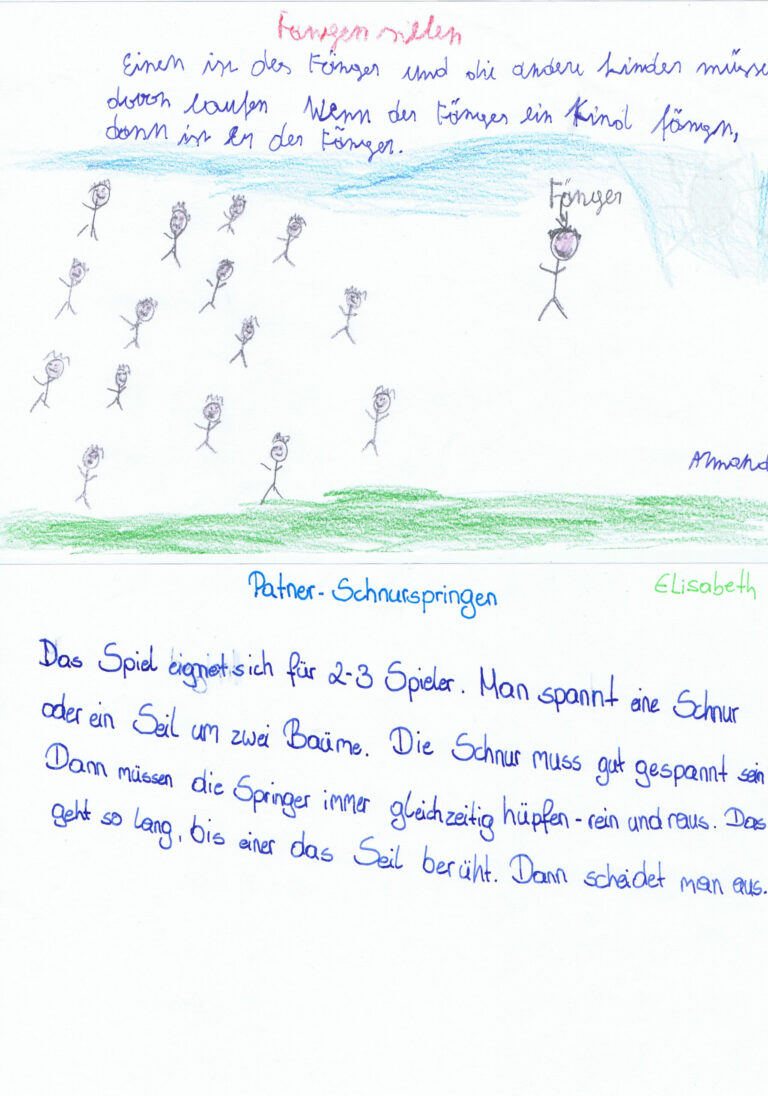 Fangen
Einer ist der Fänger und die andere Kinder müsse
davon laufen Wenn der Fänger ein Kind fängen,
dann ist er der Fänger.
Fänger
Patner-Schnurspringen
Elisabeth
Das Spiel eignet sich für 2-3 Spieler. Man spannt eine Schnur
oder ein Seil um zwei Baüme. Die Schnur muss gut gespannt sein
Dann müssen die Springer immer gleichzeitig hüpfen - rein und raus. Das
geht so lang, bis einer das Seil berüht. Dann scheidet man aus.